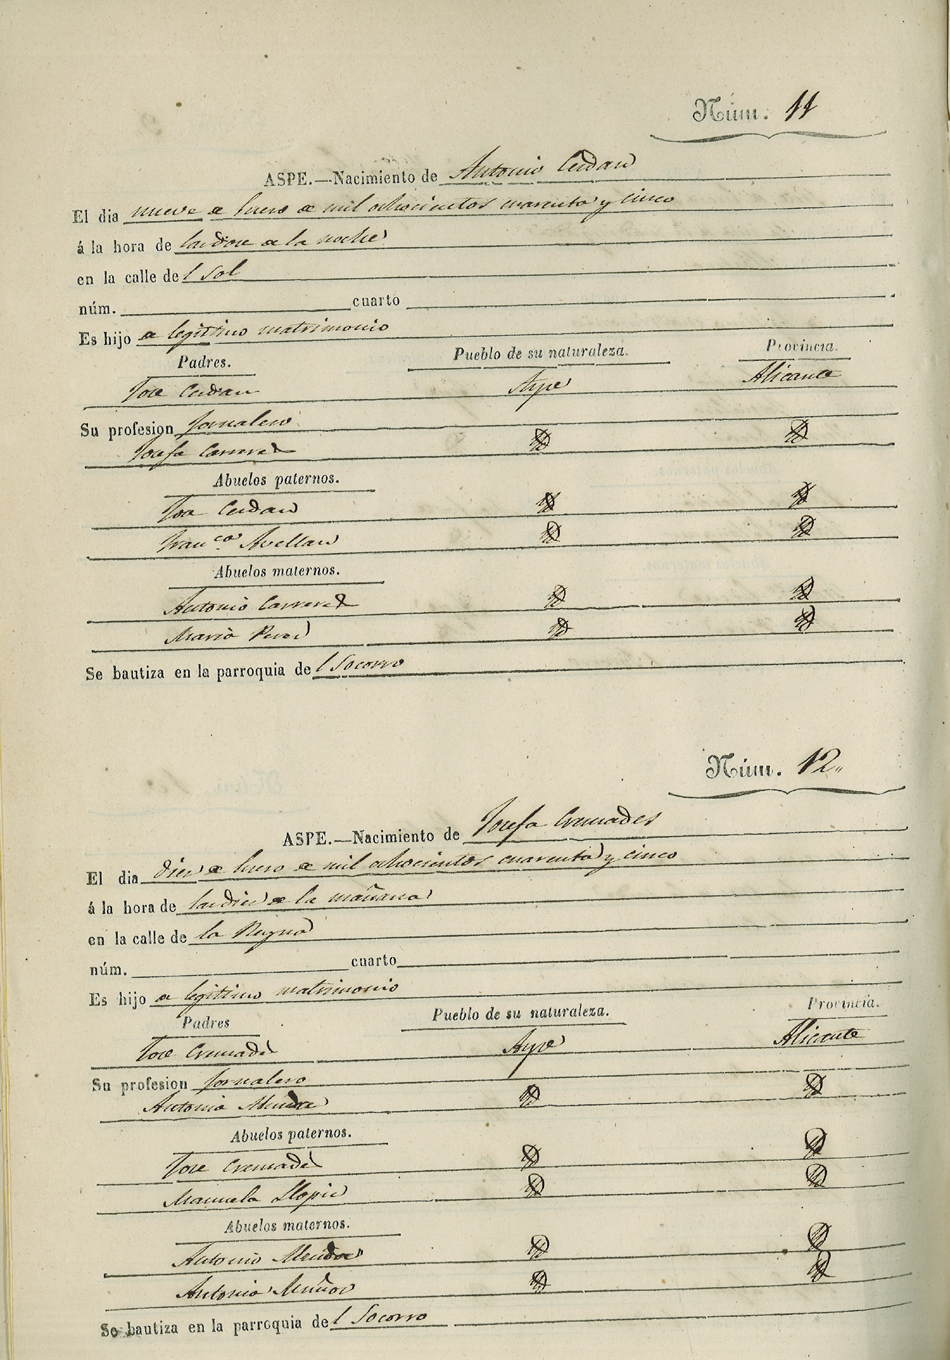 Núm. 11
ASPE.—Nacimiento de Antonio Cerdan
El dia nueve de Enero de mil ochocientos cuarenta y cinco
á la hora de las doce de la noche
en la calle del Sol
núm. cuarto
Es hijo de legitimo matrimonio
Padres. Pueblo de su naturaleza. Provincia.
Jose Cerdan Aspe Alicante
Su profesion Jornalero
Josefa Carreres
Abuelos paternos.
Jose Cerdan
Franca. Avellan
Abuelos maternos.
Antonio Carreres
Maria Perez
Se bautiza en la parroquia del Socorro
Núm. 12
ASPE.—Nacimiento de Josefa Cremades
El dia diez de Enero de mil ochocientos cuarenta y cinco
á la hora de las diez de la mañana
en la calle de la Reyna
núm. cuarto
Es hijo de legitimo matrimonio
Padres Pueblo de su naturaleza. Provincia.
Jose Cremades Aspe Alicante
Su profesion Jornalero
Antonia
Abuelos paternos.
Jose Cremades
Manuela Llopis
Abuelos maternos.
Antonio
Antonia Muñoz
Se bautiza en la parroquia del Socorro